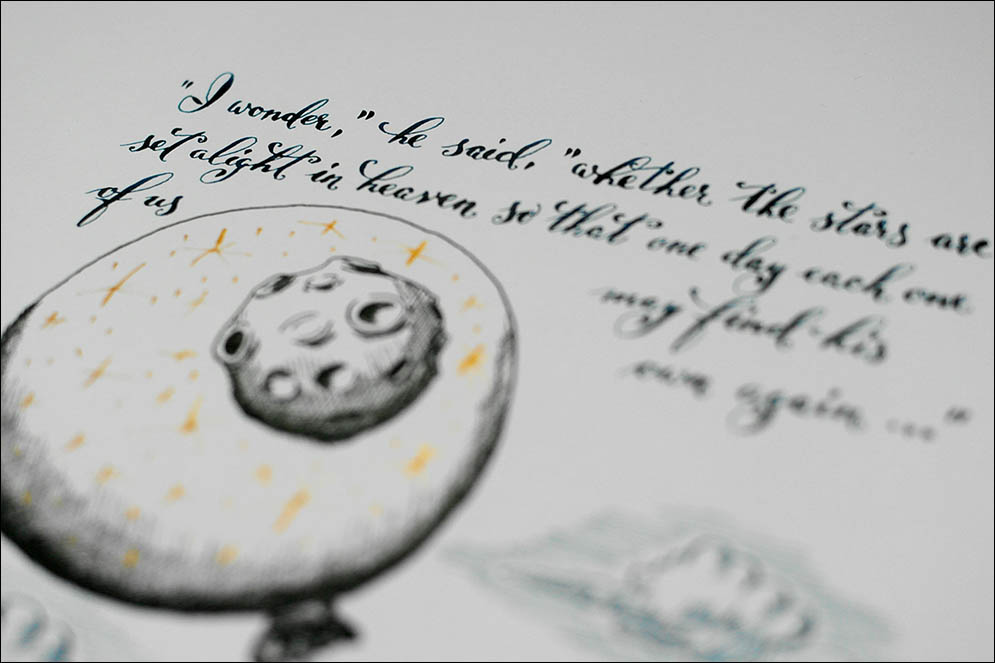 "I wonder," he said, "whether the stars are
set alight in heaven so that one day each one
of us may find his
own again ..."